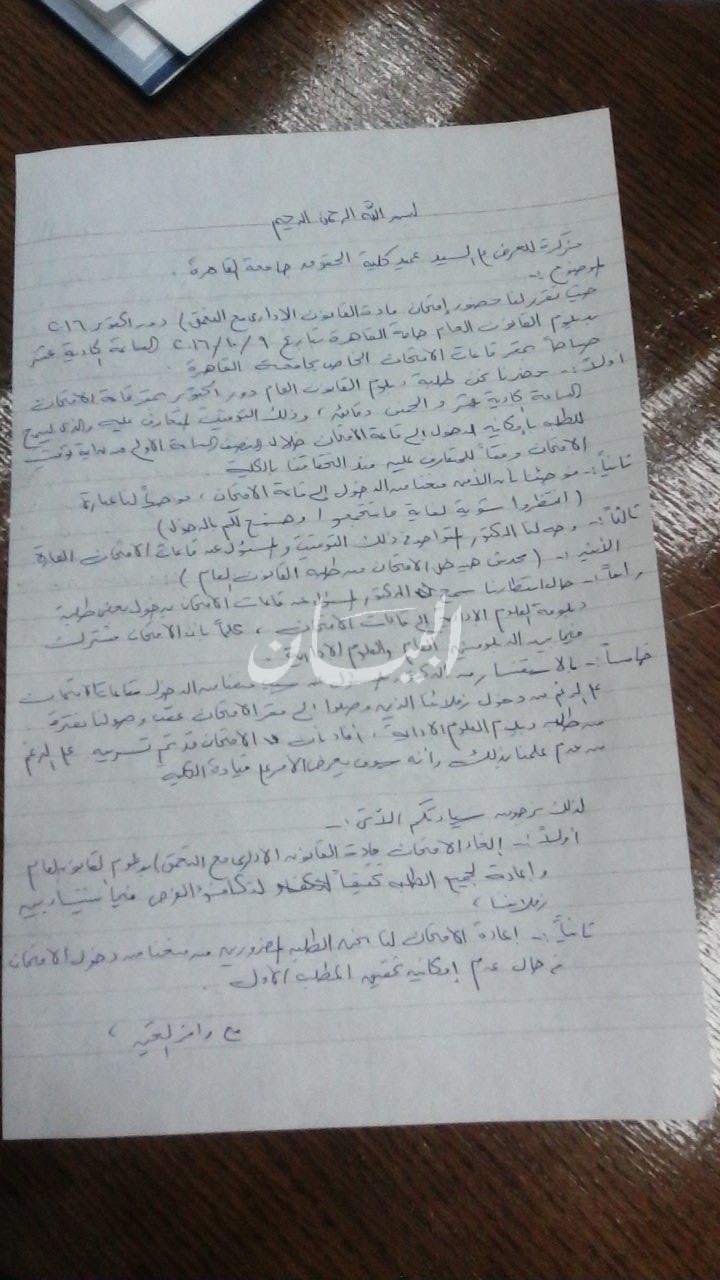 بسم الله الرحمن الرحيم
مذكرة للعرض ع السيد عميد كلية الحقوق جامعة القاهرة .
الموضوع :-
حيث تقرر لنا حضور إمتحان مادة القانون الادارى مع التعمق ) دور اكتوبر ٢٠١٦
بدبلوم القانون العام جامعة القاهرة بتاريخ ٢٠١٦/١٠/٩ الساعة الحادية عشر
صباحاً بمقر قاعات الامتحانات الخاص بجامعة القاهرة .
أولاً :- حضرنا نحن طلبة دبلوم القانون العام دور اكتوبر بمقر قاعة الامتحانات
الساعة الحادية عشر و الخمس دقائق ، وذلك التوقيت المتعارف عليه والذى يسمح
للطلبه بإمكانية الدخول إلى قاعة الامتحان خلال النصف الساعة الاولى من بداية وقت
الامتحان وفقاً للمتعارف عليه منذ التحاقنا بالكلية
ثانياً :- فوجئنا بأن الأمن منعنا من الدخول إلى قاعة الامتحان ، موجهاً لنا عبارة
( انتظروا شوية لغاية ما تتجمعوا وهسمح لكم بالدخول )
ثالثاً :- وجه لنا الدكتور المتواجد ذلك التوقيت والمسئول عن قاعات الامتحانات العبارة
الأتية :- ( محدش هيدخل الامتحان من طلبه القانون العام )
رابعاً :- حال انتظارنا سمح الدكتور المسئول عن قاعات الامتحان بدخول بعض طلبة
دبلومة العلوم الادارية إلى قاعات الامتحان ، علماً بأن الامتحان مشترك
فيما بين الدبلومتين العام والعلوم الادارية .
خامساً :- بالاستفسار من الدكتور المسئول عن سبب منعنا من الدخول لقاعات الامتحان
ع الرغم من دخول زملائنا الذين وصلوا إلى مقر الامتحان عقب وصولنا بفترة
من طلبه دبلوم العلوم الادارية ، أفاد بأن الامتحان قد تم تسريبه ع الرغم
من عدم علمنا بذلك وأنه سوف يعرض الأمر ع قيادة الكلية
لذلك نرجو من سيادتكم الأتى :-
أولاً :- إلغاء الامتحان مادة القانون الادارى مع التعمق ) دبلوم القانون العام
و إعادة لجميع الطلبه تحقيقاً لتكافؤ الفرص فيما بيننا وبين
زملائنا ،
ثانياً :- اعادة الامتحان لنا نحن الطلبه المضرورين من منعنا من دخول الامتحان
فى حال عدم إمكانية تحقيق المطلب الأول .
مع وافر التحية ،
البيان